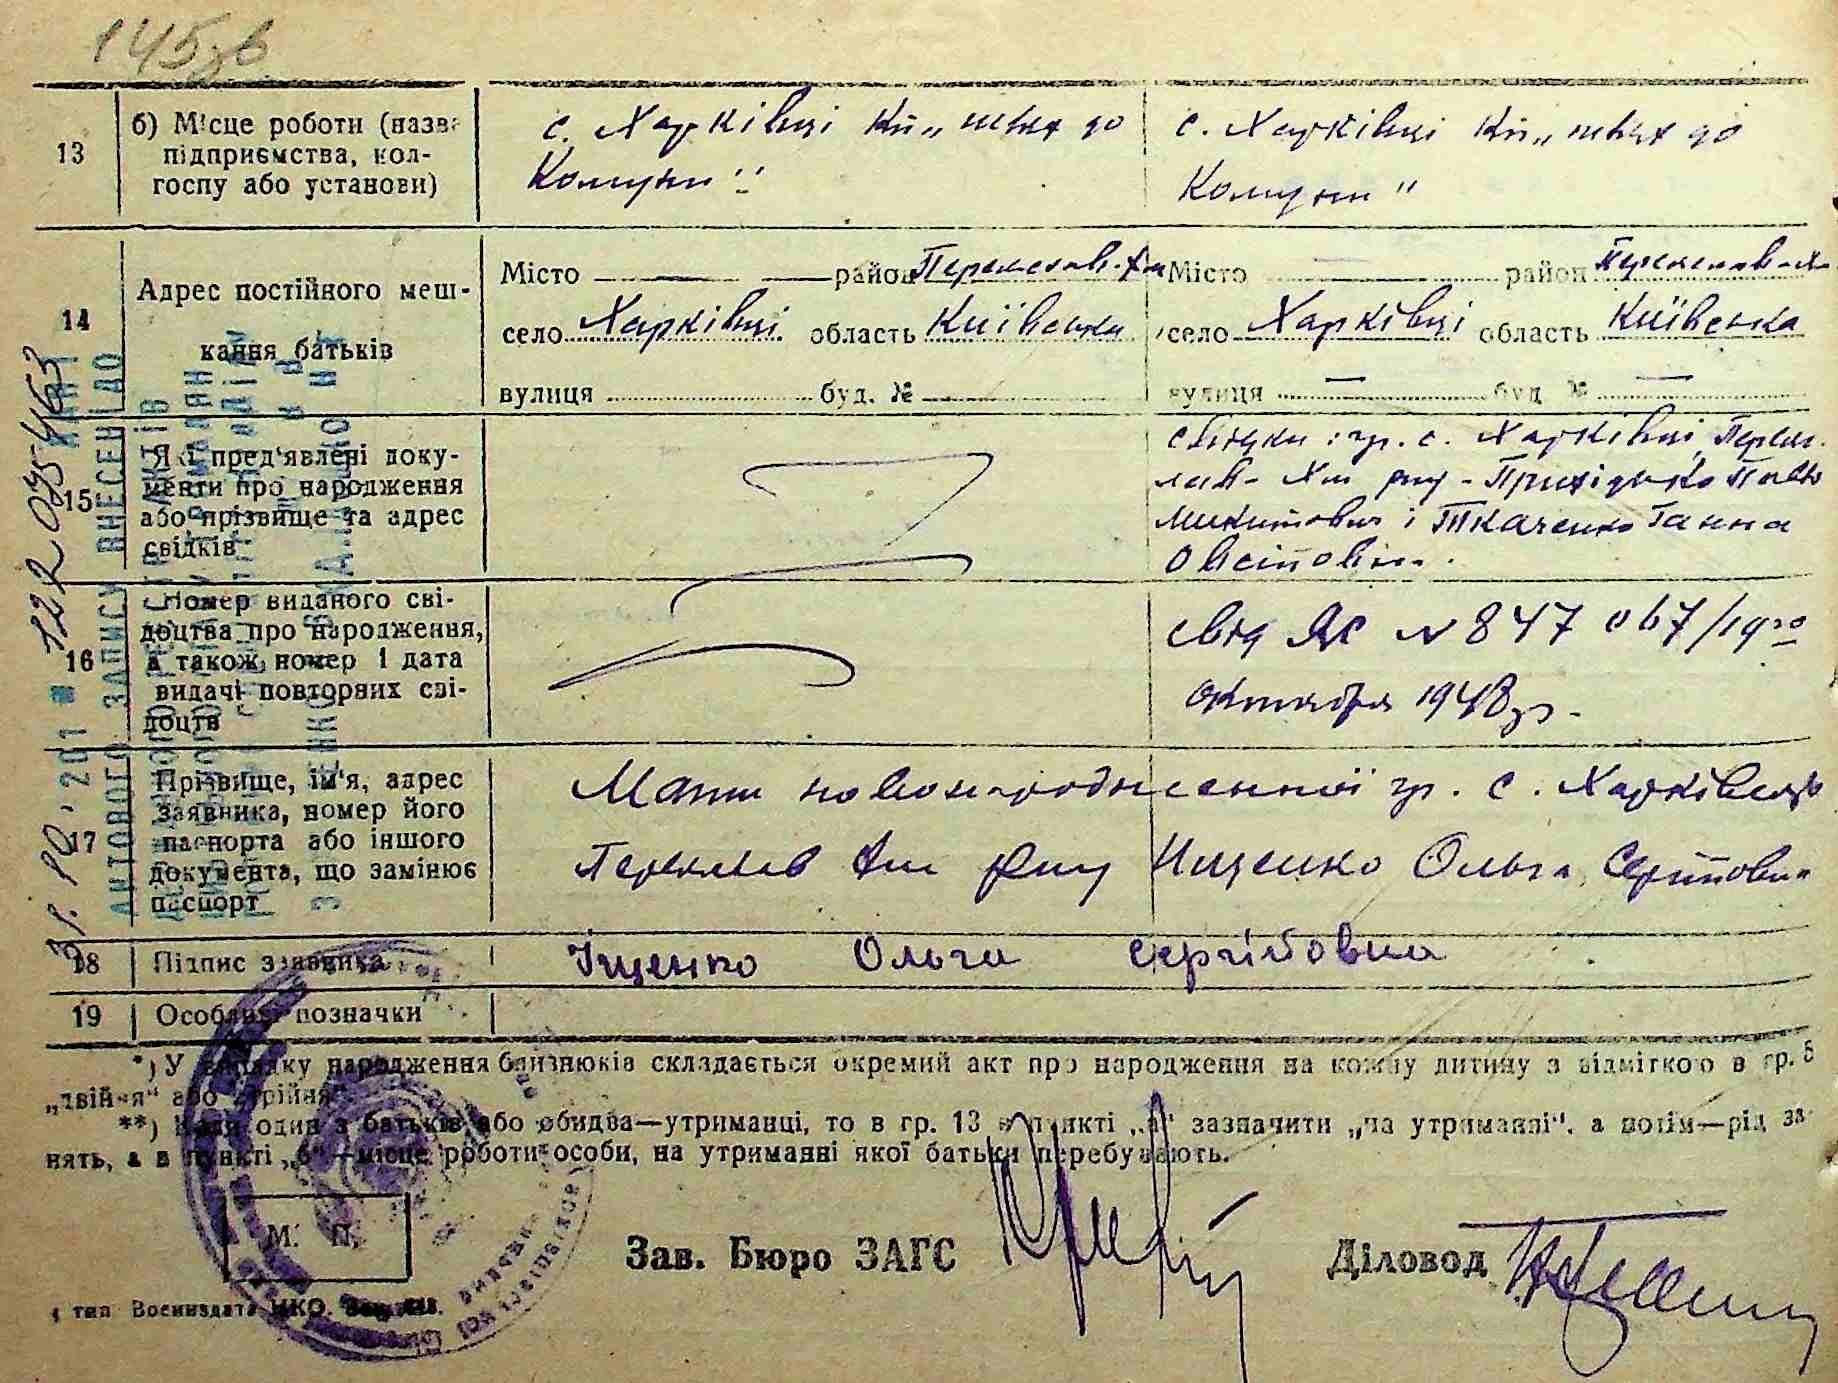 145зв
13
б) Місце роботи (назва
підприємства, кол-
госпу або установи)
с. Харківці К-п „шлях до
Комуни"
с. Харківці К-п „шлях до
Комуни"
14
Адрес постійного меш-
кання батьків
Місто — район Переяслав-Хм
село Харківці область Київська
вулиця буд. №
Місто — район Переяслав-Хм
село Харківці область Київська
вулиця — буд № —
15
Які пред'явлені доку-
менти про народження
або прізвище та адрес
свідків
свідки: гр. с. Харківці Переяс-
лав-Хм р-ну - Прихідько Павло
Микитович і Ткаченко Ганна
Овсіївна.
16
Номер виданого сві-
доцтва про народження,
а також, номер і дата
видачі повторних сві-
доцтв
свід ЯС № 847067/19го
октября 1948 р.
17
Прізвище, ім'я, адрес
заявника, номер його
паспорта або іншого
документа, що замінює
паспорт
Мати новонародженної гр. с. Харківець
Переяслав Хм р-ну Іщенко Ольга
18
Підпис заявника
Іщенко Ольга
19
Особливі позначки
*) У випадку народження близнюків складається окремий акт про народження на кожну дитину з відміткою в гр. 5
„двійня" або „трійня".
**) Коли один з батьків або обидва—утриманці, то в гр. 13 в пункті „а" зазначити „на утриманні", а потім—рід за-
нять, а в пункті „б"—місце роботи особи, на утриманні якої батьки перебувають.
М. П.
Зав. Бюро ЗАГС
Діловод
тип Воениздата НКО.
АКТОВОГО ЗАПИСУ ВНЕСЕНІ ДО
31. 10. 201